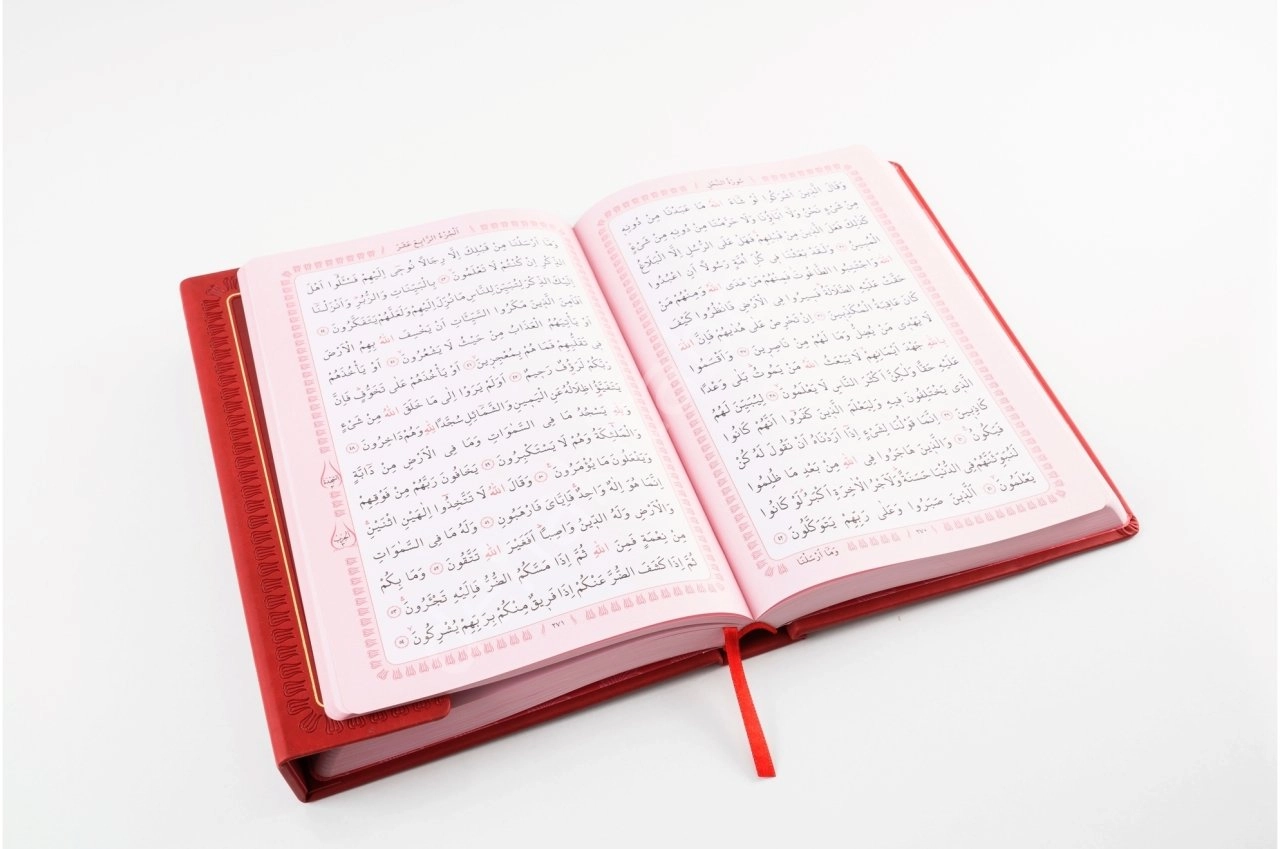 سُورَةُ النَّحْلِ
وَقَالَ الَّذِينَ اَشْرَكُوا لَوْ شَاءَ اللّٰهُ مَا عَبَدْنَا مِنْ دُونِهِ
مِنْ شَيْءٍ نَحْنُ وَلَا اٰبَاؤُنَا وَلَا حَرَّمْنَا مِنْ دُونِهِ مِنْ شَيْءٍ
كَذٰلِكَ فَعَلَ الَّذِينَ مِنْ قَبْلِهِمْ فَهَلْ عَلَى الرُّسُلِ اِلَّا الْبَلَاغُ
الْمُبِينُ ٣٥ وَلَقَدْ بَعَثْنَا فِي كُلِّ اُمَّةٍ رَسُولًا اَنِ اعْبُدُوا
اللّٰهَ وَاجْتَنِبُوا الطَّاغُوتَ فَمِنْهُمْ مَنْ هَدَى اللّٰهُ وَمِنْهُمْ مَنْ
حَقَّتْ عَلَيْهِ الضَّلَالَةُ فَسِيرُوا فِي الْاَرْضِ فَانْظُرُوا كَيْفَ
كَانَ عَاقِبَةُ الْمُكَذِّبِينَ ٣٦ اِنْ تَحْرِصْ عَلٰى هُدٰيهُمْ فَاِنَّ اللّٰهَ
لَا يَهْدِي مَنْ يُضِلُّ وَمَا لَهُمْ مِنْ نَاصِرِينَ ٣٧ وَاَقْسَمُوا
بِاللّٰهِ جَهْدَ اَيْمَانِهِمْ لَا يَبْعَثُ اللّٰهُ مَنْ يَمُوتُ بَلٰى وَعْدًا
عَلَيْهِ حَقًّا وَلٰكِنَّ اَكْثَرَ النَّاسِ لَا يَعْلَمُونَ ٣٨ لِيُبَيِّنَ لَهُمُ
الَّذِي يَخْتَلِفُونَ فِيهِ وَلِيَعْلَمَ الَّذِينَ كَفَرُوا اَنَّهُمْ كَانُوا
كَاذِبِينَ ٣٩ اِنَّمَا قَوْلُنَا لِشَيْءٍ اِذَا اَرَدْنَاهُ اَنْ نَقُولَ لَهُ كُنْ
فَيَكُونُ ٤٠ وَالَّذِينَ هَاجَرُوا فِي اللّٰهِ مِنْ بَعْدِ مَا ظُلِمُوا
لَنُبَوِّئَنَّهُمْ فِي الدُّنْيَا حَسَنَةً وَلَاَجْرُ الْاٰخِرَةِ اَكْبَرُ لَوْ كَانُوا
يَعْلَمُونَ ٤١ اَلَّذِينَ صَبَرُوا وَعَلٰى رَبِّهِمْ يَتَوَكَّلُونَ ٤٢
٢٧٠
وَمَا اَرْسَلْنَا
اَلْجُزْءُ الرَّابِعَ عَشَرَ
وَمَا اَرْسَلْنَا مِنْ قَبْلِكَ اِلَّا رِجَالًا نُوحِي اِلَيْهِمْ فَسْـَٔلُوا اَهْلَ
الذِّكْرِ اِنْ كُنْتُمْ لَا تَعْلَمُونَ ٤٣ بِالْبَيِّنَاتِ وَالزُّبُرِ وَاَنْزَلْنَا
اِلَيْكَ الذِّكْرَ لِتُبَيِّنَ لِلنَّاسِ مَا نُزِّلَ اِلَيْهِمْ وَلَعَلَّهُمْ يَتَفَكَّرُونَ ٤٤
اَفَاَمِنَ الَّذِينَ مَكَرُوا السَّيِّـَٔاتِ اَنْ يَخْسِفَ اللّٰهُ بِهِمُ الْاَرْضَ
اَوْ يَأْتِيَهُمُ الْعَذَابُ مِنْ حَيْثُ لَا يَشْعُرُونَ ٤٥ اَوْ يَأْخُذَهُمْ
فِي تَقَلُّبِهِمْ فَمَا هُمْ بِمُعْجِزِينَ ٤٦ اَوْ يَأْخُذَهُمْ عَلٰى تَخَوُّفٍ فَاِنَّ
رَبَّكُمْ لَرَؤُفٌ رَحِيمٌ ٤٧ اَوَلَمْ يَرَوْا اِلٰى مَا خَلَقَ اللّٰهُ مِنْ شَيْءٍ
يَتَفَيَّؤُا ظِلَالُهُ عَنِ الْيَمِينِ وَالشَّمَائِلِ سُجَّدًا لِلّٰهِ وَهُمْ دَاخِرُونَ ٤٨
وَلِلّٰهِ يَسْجُدُ مَا فِي السَّمٰوَاتِ وَمَا فِي الْاَرْضِ مِنْ دَابَّةٍ
وَالْمَلٰئِكَةُ وَهُمْ لَا يَسْتَكْبِرُونَ ٤٩ يَخَافُونَ رَبَّهُمْ مِنْ فَوْقِهِمْ
وَيَفْعَلُونَ مَا يُؤْمَرُونَ ٥٠ وَقَالَ اللّٰهُ لَا تَتَّخِذُوا اِلٰهَيْنِ اثْنَيْنِ
اِنَّمَا هُوَ اِلٰهٌ وَاحِدٌ فَاِيَّايَ فَارْهَبُونِ ٥١ وَلَهُ مَا فِي السَّمٰوَاتِ
وَالْاَرْضِ وَلَهُ الدِّينُ وَاصِبًا اَفَغَيْرَ اللّٰهِ تَتَّقُونَ ٥٢ وَمَا بِكُمْ
مِنْ نِعْمَةٍ فَمِنَ اللّٰهِ ثُمَّ اِذَا مَسَّكُمُ الضُّرُّ فَاِلَيْهِ تَجْـَٔرُونَ ٥٣
ثُمَّ اِذَا كَشَفَ الضُّرَّ عَنْكُمْ اِذَا فَرِيقٌ مِنْكُمْ بِرَبِّهِمْ يُشْرِكُونَ ٥٤
٢٧١